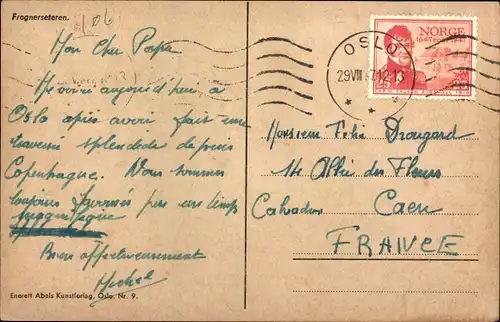 Frognerseteren.
106
Mon Cher Papa
Me voici aujourd'hui à
Oslo après avoir fait une
traversée splendide depuis
Copenhague. Nous sommes
toujours favorisés par un temps
magnifique
Bien affectueusement
Michel
Enerett Abels Kunstforlag, Oslo. Nr. 9.
NORGE
1647 POSTEN 1947
OSLO
29 VIII 47 12-13
Monsieur Félix Drougard
14 Allée des Fleurs
Calvados Caen
FRANCE